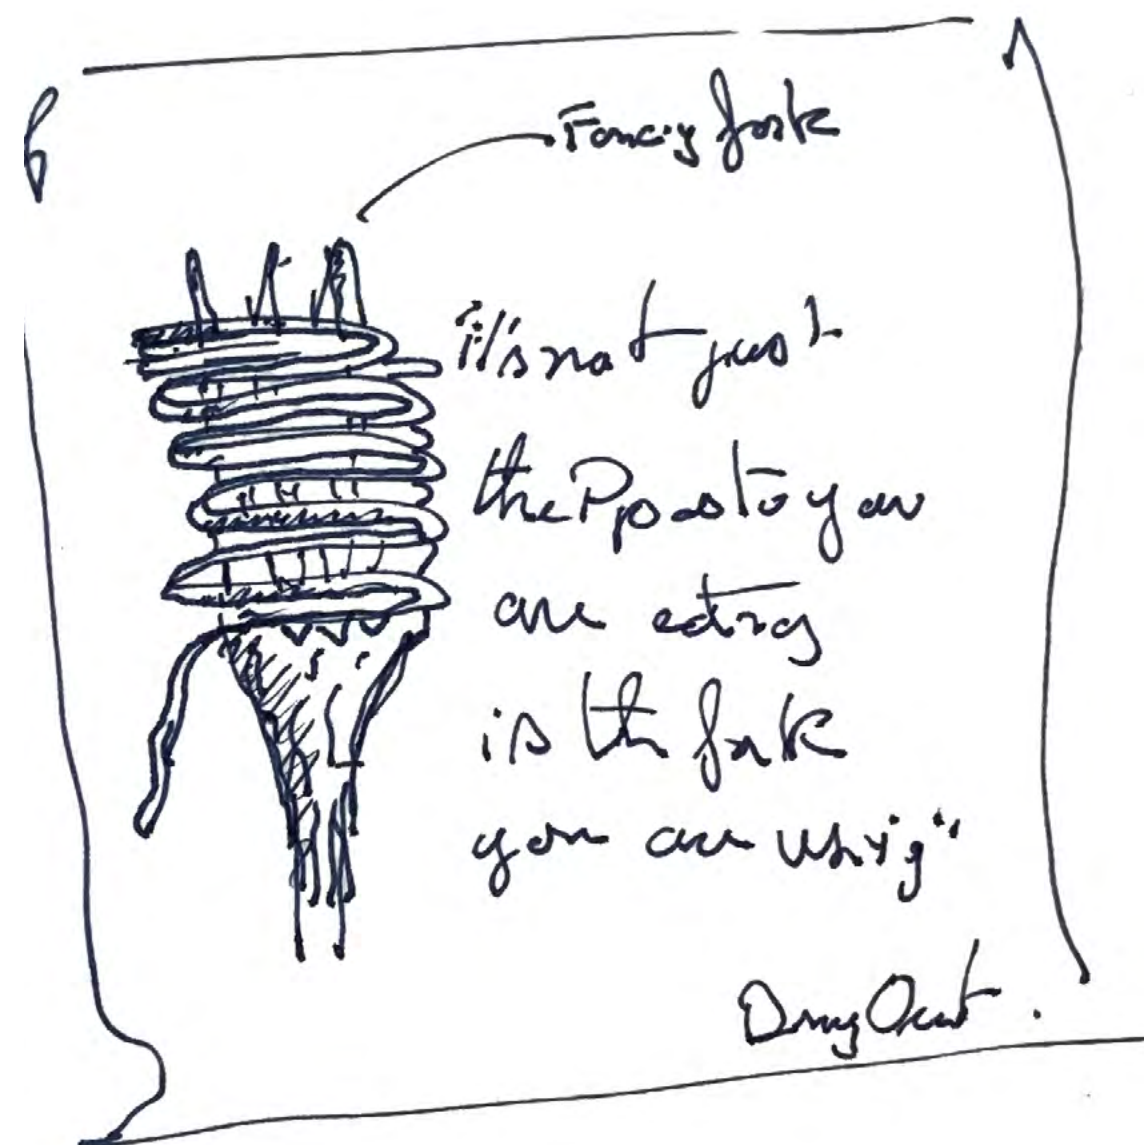 Fancy fork
"it's not just
the Ppasta you
are eating
is the fork
you are using"